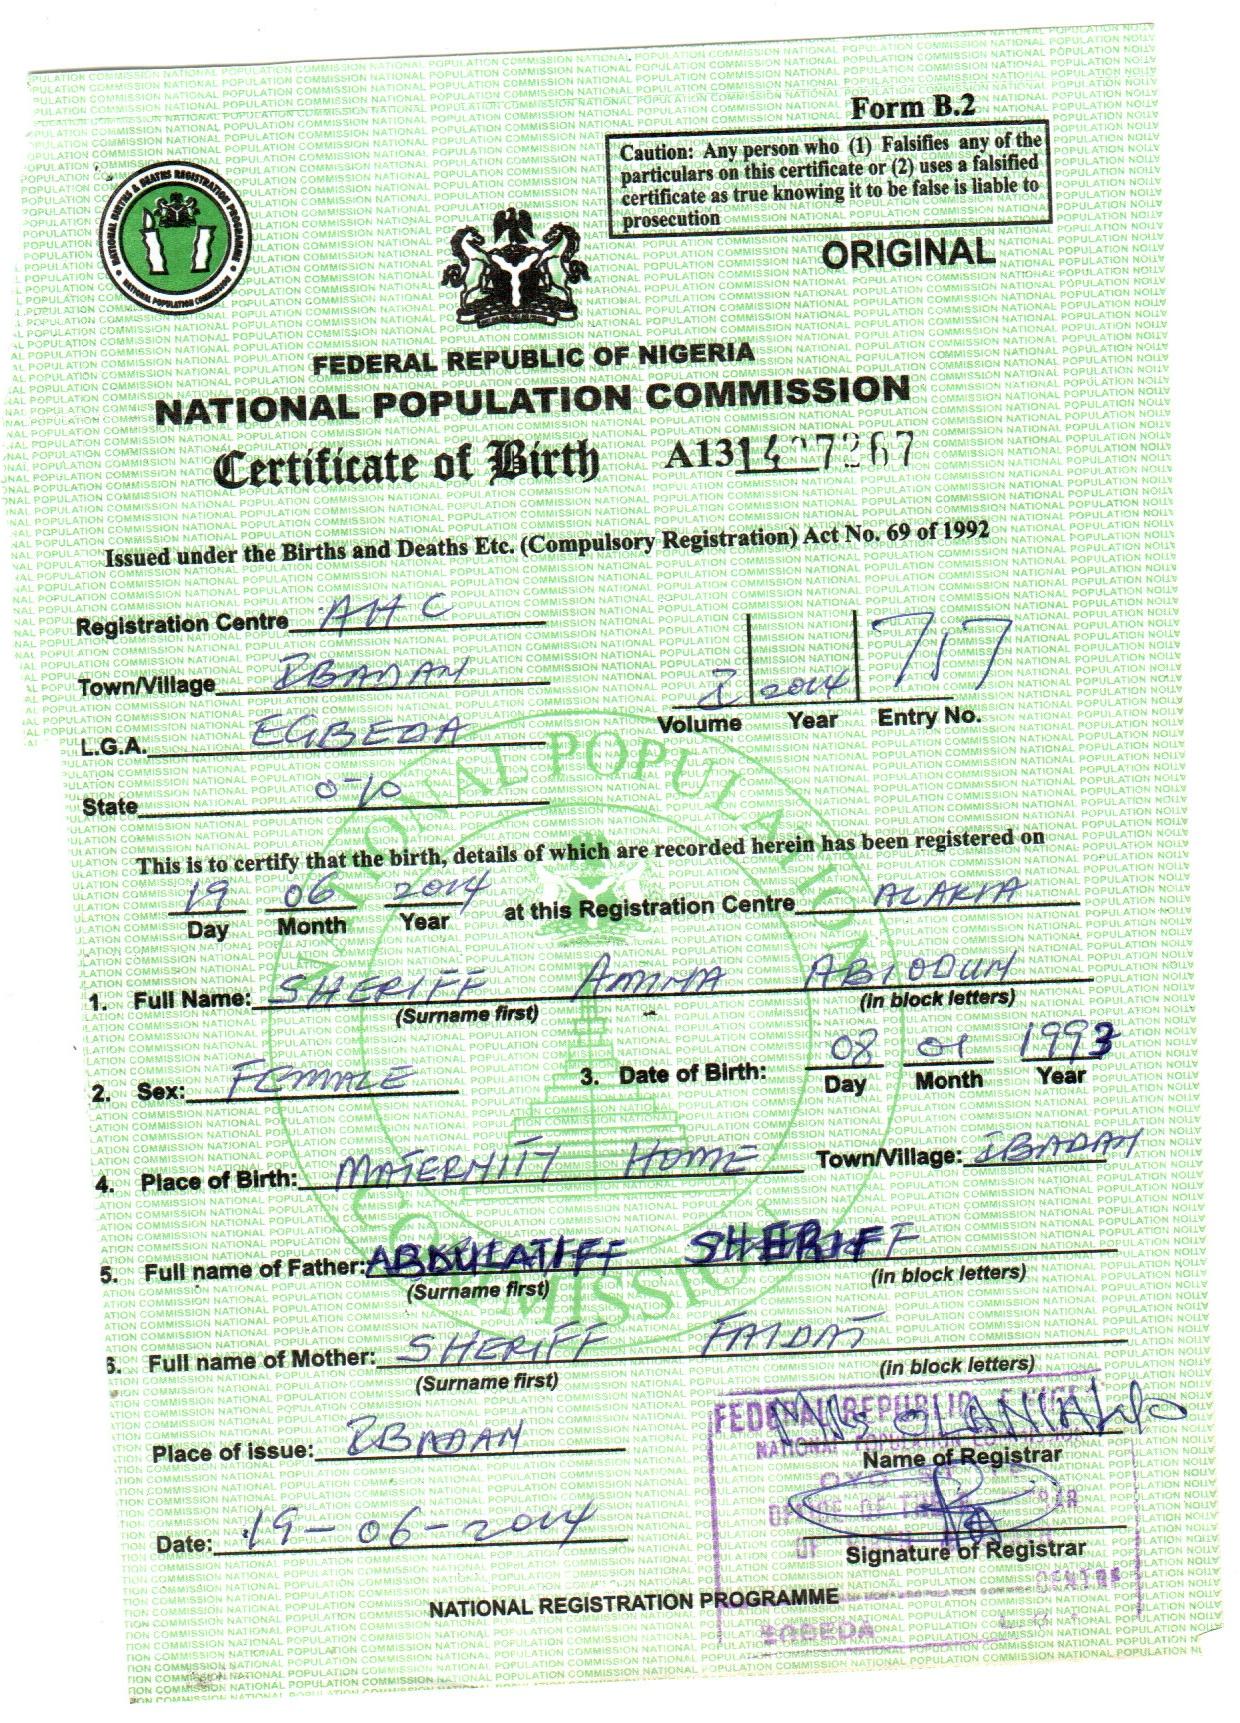 Form B.2
Caution: Any person who (1) Falsifies any of the
particulars on this certificate or (2) uses a falsified
certificate as true knowing it to be false is liable to
prosecution
ORIGINAL
NATIONAL BIRTHS & DEATHS REGISTRATION PROGRAMME
NATIONAL POPULATION COMMISSION
FEDERAL REPUBLIC OF NIGERIA
NATIONAL POPULATION COMMISSION
Certificate of Birth A13
Issued under the Births and Deaths Etc. (Compulsory Registration) Act No. 69 of 1992
Registration Centre AHC
Town/Village IBADAN
L.G.A. EGBEDA
State OYO
I 2014 717
Volume Year Entry No.
This is to certify that the birth, details of which are recorded herein has been registered on
19 06 2014 at this Registration Centre ALAKIA
Day Month Year
1. Full Name: SHERIFF AMINA ABIODUN
(Surname first) (in block letters)
2. Sex: FEMALE 3. Date of Birth: 08 01 1993
Day Month Year
4. Place of Birth: MATERNITY HOME Town/Village: IBADAN
5. Full name of Father: ABDULATIFF SHERIFF
(Surname first) (in block letters)
6. Full name of Mother: SHERIFF FAIDAT
(Surname first) (in block letters)
Place of issue: IBADAN
Name of Registrar
Date: 19-06-2014
Signature of Registrar
NATIONAL REGISTRATION PROGRAMME
EGBEDA
NATIONAL POPULATION COMMISSION